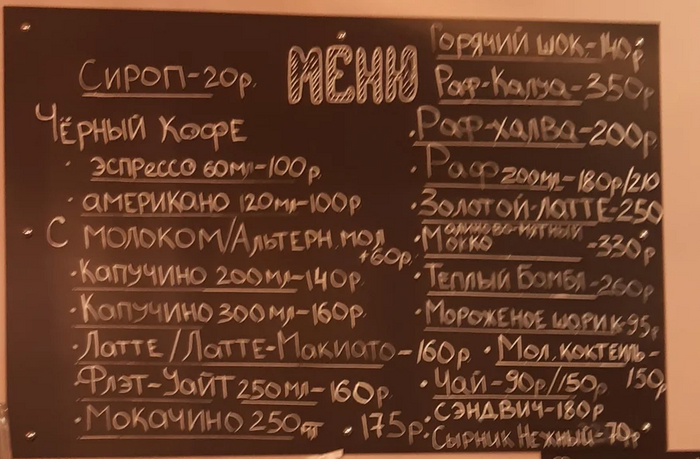 МЕНЮ
Сироп-20р.
Чёрный кофе
· эспрессо 60мл-100р
· американо 120мл-100р
С молоком/Альтерн.мол
+60р
·Капучино 200мл-140р
·Капучино 300мл-160р
·Латте/Латте-Макиато-160р
·Флэт-Уайт 250мл-160р
·Мокачино 250мл ·175р
Горячий шок.-140р
Раф-Калуа-350р
·Раф-халва-200р
·Раф 200мл-180р/210
·Золотой-латте-250
·Малиново-мятный
Мокко -330р
·Тёплый Бомбл-260р
·Мороженое шарик-95р
·Мол.коктейль-
150р
·Чай-90р/150р
·сэндвич-180р
·Сырник Нежный-70р